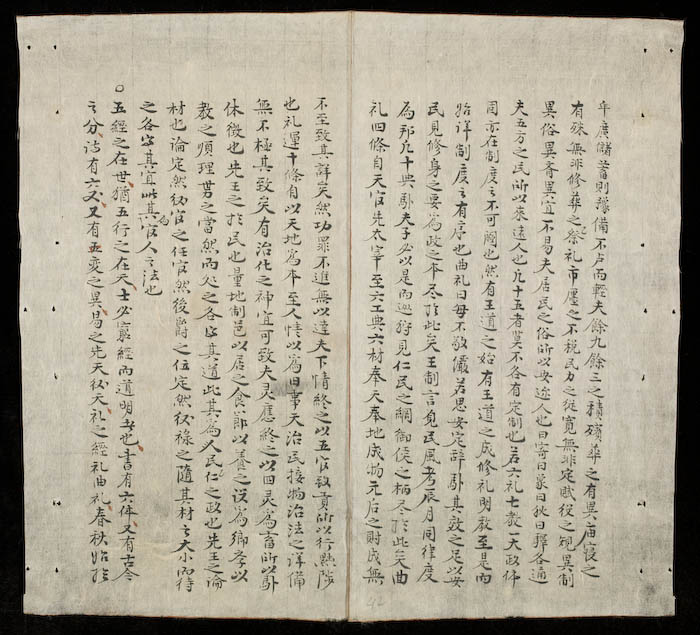 平廣儲蓄則豫備不占而輕夫餘九餘三之積殯葬之有異庙寢之
有殊無非修葬之祭礼市廛之不税民力之從寬無非定賦役之規異制
異俗異齊異宜不易夫居民之俗所以安迩人也曰寄曰象曰狄曰譯各通
夫五方之民所以来遠人也凡十五者莫不各有定制也若六礼七教一大政体
同亦在制度之不可闕也然有王道之始有王道之成修礼明教至是而
始详制度之有序也曲礼曰毋不敬儼若思安定辞馭其效之足以安
民見修身之要為政之本尽於此矣王制言覓民風考辰月同律度
為邢凡十典馭夫子必以是而巡狩見仁民之綱御侯之柄尽於此矣曲
礼四條自天官先太宰至六工典六材奉天奉地成物元后之財成無
不至致其詳矣然功罪不進無以達夫下情終之以五官致貢所以行黜陟
也礼運十條自以天地為本至人情以為田事天治民接物治法之详備
無不極其致矣有治化之神宜可致夫灵應終之以四灵為畜所以馭
休徵也先王之於民也量地制邑以居之食節以養之设為鄉孝以
教之順理男之當然而処之各当其道此其為人民仁之政也先王之論
材也論定然後官之任官然後爵之位定然後祿之隨其材之大小而待
之各当其宜此其為官人之法也
○五經之在世猶五行之在天士必窮經而道明者也書有六体又有古今
之分诗有六义又有五变之異易之先天後天礼之經礼曲礼春秋始於